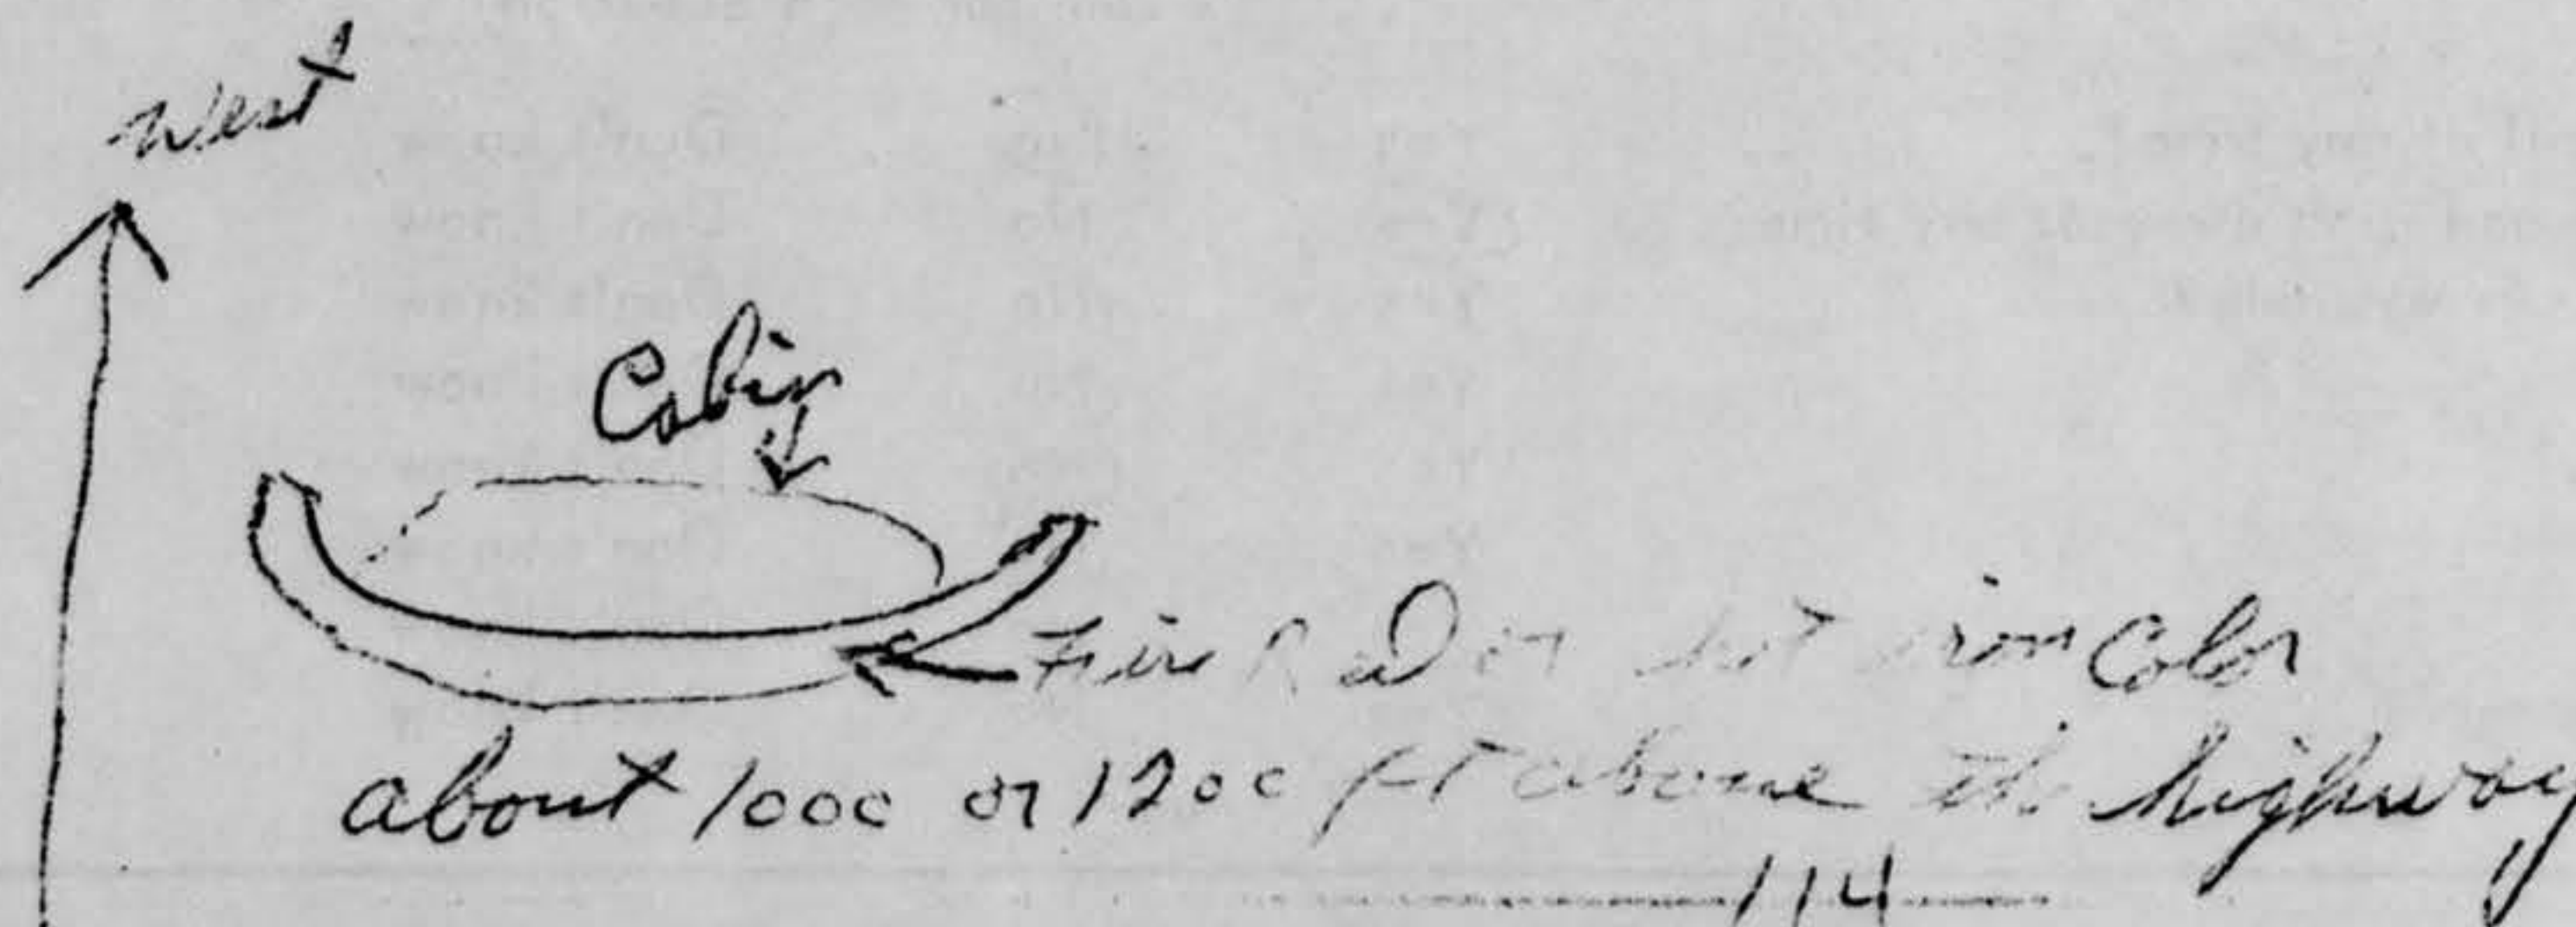 West
Cabin
Fire Red or hot iron Color
about 1000 or 1200 ft above the highway
114